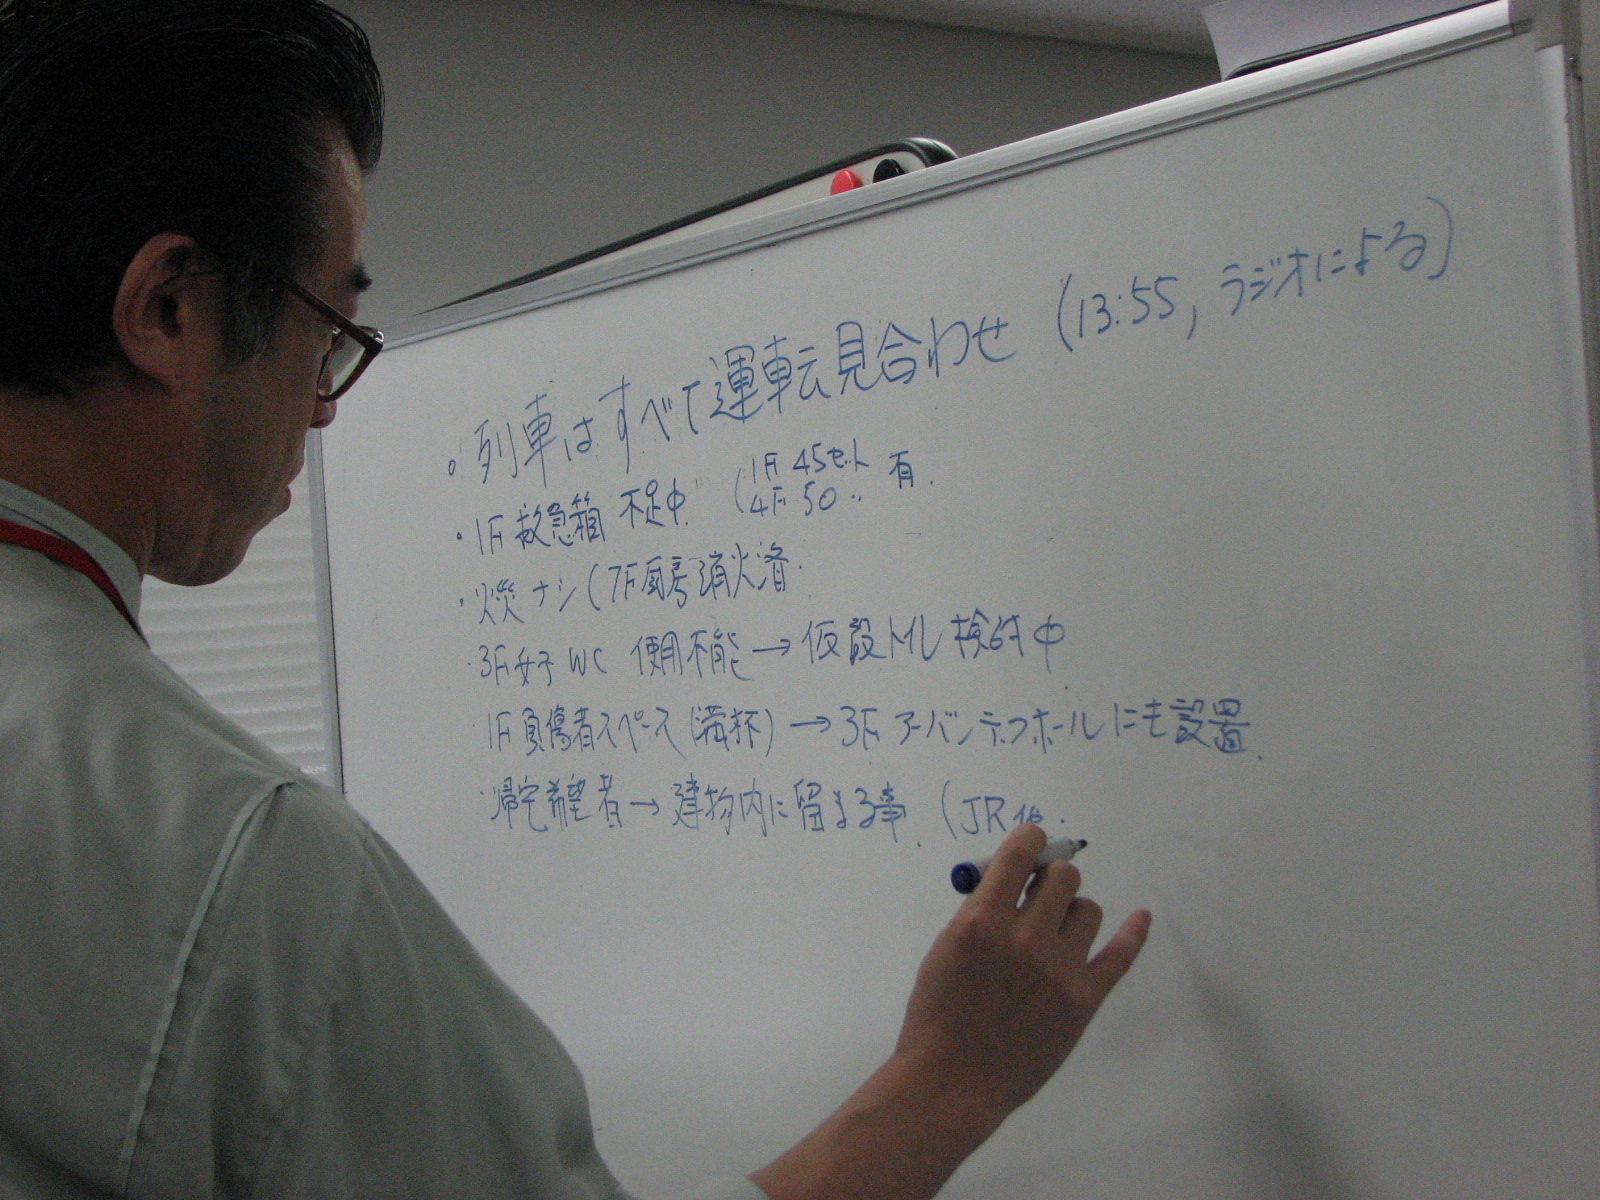 。列車はすべて運転見合わせ (13:55, ラジオによる)
・1F 救急箱 不足中. (1F 45セット 4F 50 〃 有.
・火災ナシ (7F厨房消火済.
・3F女子WC 使用不能→仮設トイレ検討中
・1F負傷者スペース(満杯)→3Fアーバンネットホールにも設置.
・帰宅希望者→建物内に留まる事. (JR他.